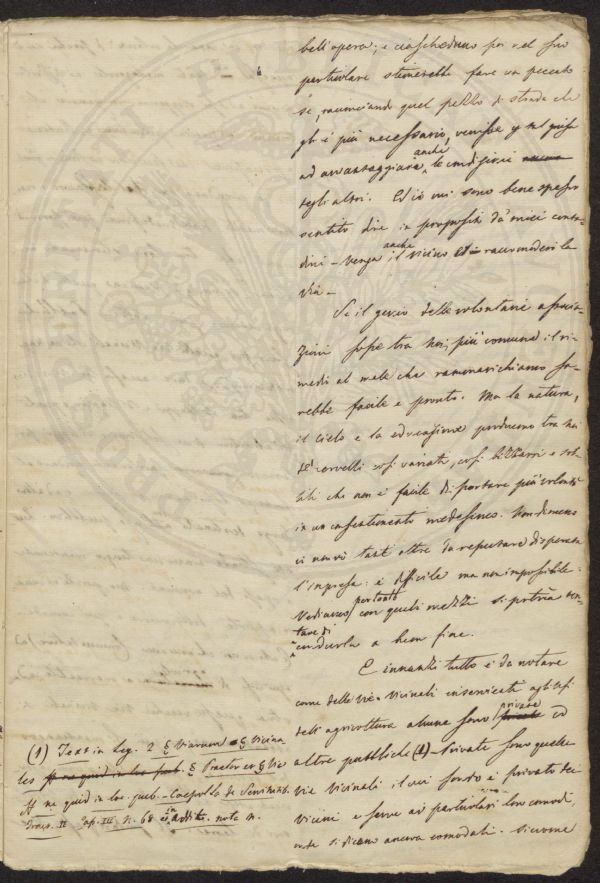 bell'opera; e ciascheduno poi nel suo
particolare stimerebbe fare un peccato
se, racconciando quel pezzo di strada che
gli è più necessario, venisse
ad avvantaggiare anche le condizioni
degli altri. Ed io mi sono bene spesso
sentito dire in proposito da' miei conta-
dini - venga anche il vicino a raccomodarsi la
via -
Se il genio delle volontarie associa-
zioni fosse tra noi più comune il ri-
medio al male che rammarichiamo sa-
rebbe facile e pronto. Ma la natura,
il cielo e la educazione producono tra noi
de' cervelli così variati, così bizzarri e sot-
tili che non è facile di portare più volontà
in un consentimento medesimo. Nondimeno
ci non tant'oltre da reputare disperata
l'impresa: è difficile ma non impossibile.
Vediamo pertanto con quali mezzi si potria ten-
tare di
condurla a buon fine.
E innanzi tutto è da notare
come delle vie vicinali inservienti agli usi
dell'agricoltura alcune sono private ed
altre pubbliche (1) - Private sono quelle
vie vicinali, il cui fondo è privato dei
vicini e serve ai particolari loro comodi,
onde si dicono ancora comodali. Siccome
(1) Text in Leg. 2 § Viarum § Vicina-
les ff ne quid in loc. pub. § Praetor et § Vie
ff ne quid in loc. pub. - Caepolla de Servitutib.
Trac. II Cap. III N. 68 in addit. nota n.